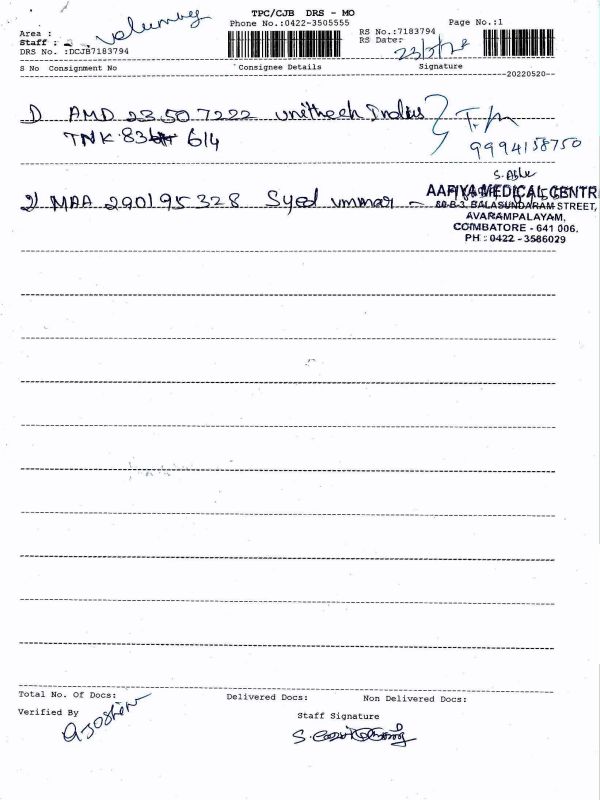 TPC/CJB DRS - MO
Phone No.:0422-3505555
Page No.:1
Area :
Staff :
DRS No. :DCJB7183794
RS No.:7183794
RS Date:
23/5/22
S No Consignment No
Consignee Details
Signature
20220520
1) AMD 23.50.7222 unitech Indus
TNK 83 614
9994158750
2) MAA 290195328 Syed ummar
AAFIYA MEDICAL CENTR
80-B-3, BALASUNDARAM STREET,
AVARAMPALAYAM,
COIMBATORE - 641 006.
PH : 0422 - 3586029
Total No. Of Docs:
Delivered Docs:
Non Delivered Docs:
Verified By
Staff Signature